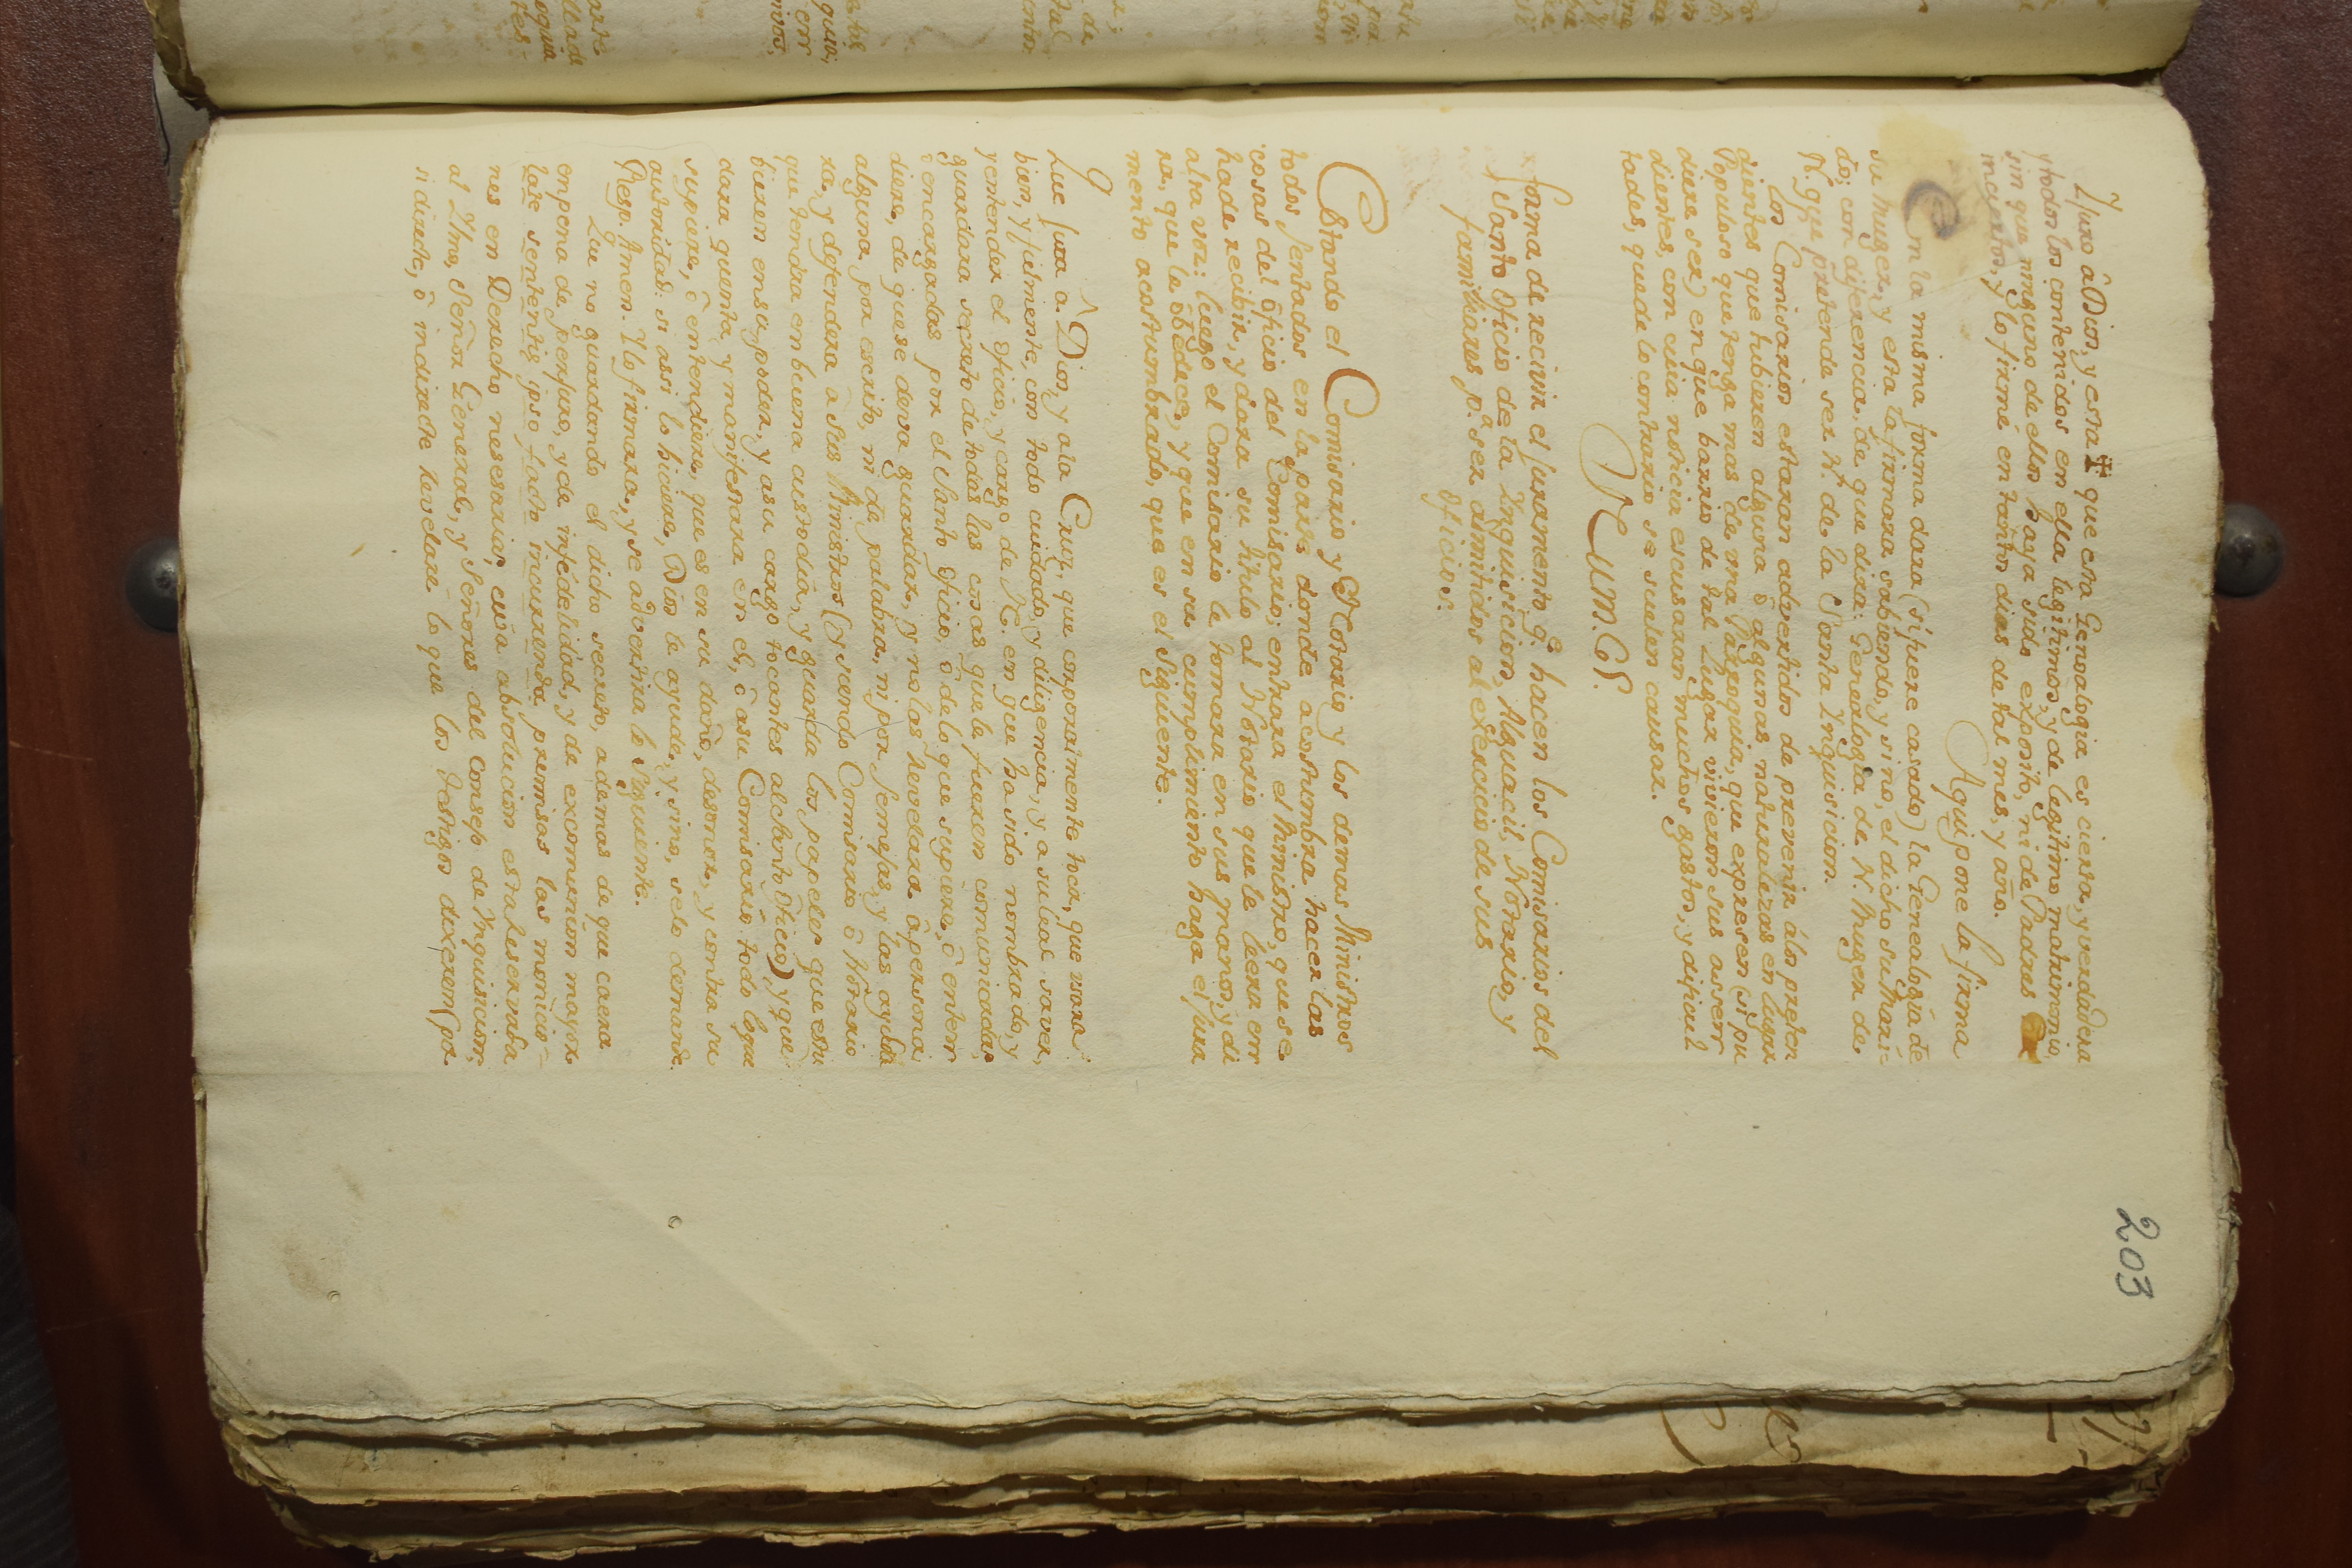 203
Y juro â Dios, y esta ✝ que esta Genealogia es cierta, y verdadera
y todos los contenidos en ella legitimos, y de legitimo matrimonio,
sin que ninguno de ellos haya sido exposito, ni de Padres
inciertos, y lo firmé en tantos dias de tal mes, y año.
Aqui pone la firma
En la misma forma dara (si fuere casado) la Genealogia de
su muger, y esta la firmara sabiendo, y sino, el dicho su Mari-
do; con diferencia, de que dira: Genealogia de N. Muger de
N. que pretende ser N. de la Santa Ynquisicion.
Los Comisarios estaran advertidos de prevenir à los preten
dientes que hubieren alguna ô algunas naturalezas en lugar
Populoso que tenga mas de una Parroquia, que expresen (si pu
diere ser) en que barrio de tal Lugar vivieron sus assen
dientes, con cuia noticia escusaran muchos gastos, y dificul
tades, que de lo contrario se suelen causar.
NUM. 6º.
forma de recivir el juramento q.ᵉ hacen los Comisarios del
Santo Oficio de la Ynquisicion, Alguacil, Notario, y
familiares p.ª ser admitidos al exercicio de sus
oficios.
Estando el Comisario y Notario y los demas Ministros
todos sentados en la parte donde acostumbra hacer las
cosas del oficio del Comisario; entrara el Ministro, que se
ha de recibir, y dara su titulo al Notario que le leera en
alta voz: luego el Comisario le tomara en sus manos, y di
ra, que le obedece, y que en su cumplimiento haga el jura
mento acostumbrado, que es el siguiente.
Que jura a Dios, y a la Cruz, que corporalmente toca, que usara
bien, y fielmente, con todo cuidado, y diligencia, y a su leal saver,
y entender el oficio, y cargo de N. en que ha sido nombrado, y
guardara secreto de todas las cosas que le fueren comunicadas
ô encargadas por el Santo Oficio, ô de lo que supiere, ô enten
diere, de que se deva guardar, y no las revelara â persona
alguna, por escrito, ni de palabra, ni por semejas, y las ayuda
ra, y defendera â sus Ministros (y siendo Comisario ô Notario
que tendra en buena custodia, y guarda los papeles que estu
bieren en su poder, y a su cargo tocantes al Santo Oficio) y que
dara quenta, y manifestara en el, ô a su Comisario todo loque
supiere, ô entendiere, que es en su daño, desonor, y contra su
autoridad: si assi lo hiciere, Dios le ayude, y sino, se lo demande.
Resp. Amen. Y lo firmara, y se advertira lo siguiente.
Que no guardando el dicho secreto, ademas de que caera
en pena de perjuro, y de infidelidad, y de excomunion mayor
late sententie ipso facto incurrenda premisas las monicio-
nes en Derecho nesesarias, cuia absolucion esta reservada
al Ylmo. Señor General, y Señores del Consejo de Ynquisicion,
si directe, ô indirecte revelare lo que los Testigos dixeren (pa-